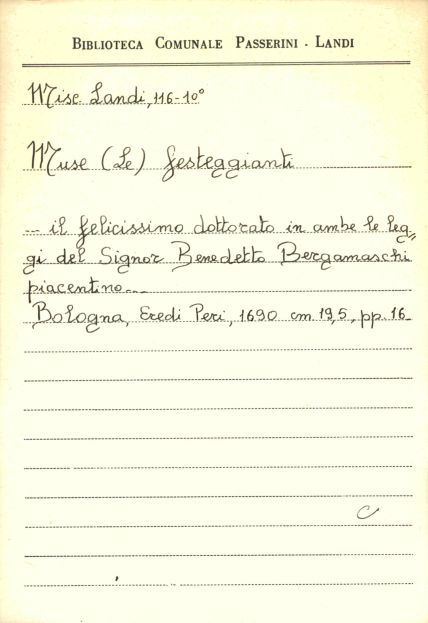 BIBLIOTECA COMUNALE PASSERINI - LANDI
Misc. Landi, 116-10°
Muse (Le) festeggianti
... il felicissimo dottorato in ambe le leg=
gi del Signor Benedetto Bergamaschi
piacentino...
Bologna, Eredi Peri, 1690 cm 19,5, pp. 16.
C